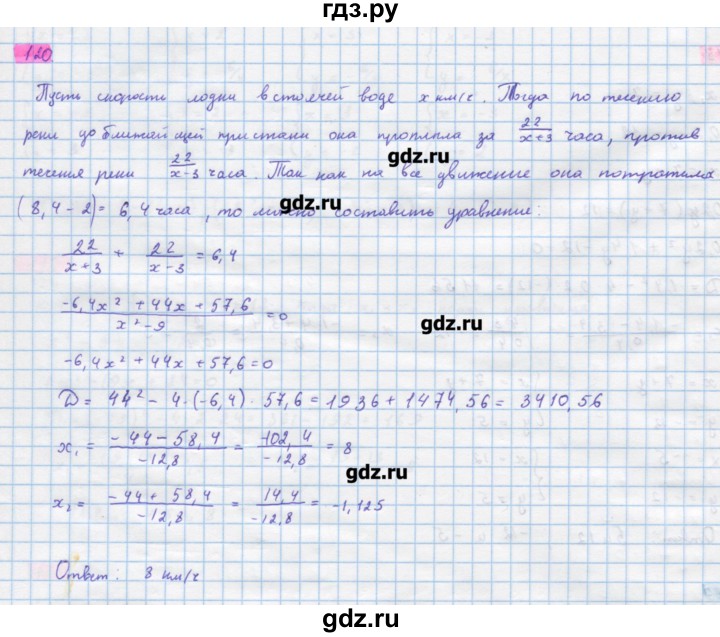 гдз.ру
120
Пусть скорость лодки в стоячей воде x км/ч. Тогда по течению
реки до ближайшей пристани она проплыла за 22/x+3 часа, против
гдз.ру
течения реки 22/x-3 часа. Так как на все движение она потратила
(8,4-2)= 6,4 часа, то можно составить уравнение:
gdz.ru
22/x+3 + 22/x-3 = 6,4
-6,4x² + 44x + 57,6/x²-9 = 0
gdz.ru
-6,4x² + 44x + 57,6 = 0
D = 44² - 4·(-6,4)·57,6 = 1936 + 1474,56 = 3410,56
x₁ = -44-58,4/-12,8 = -102,4/-12,8 = 8
gdz.ru
x₂ = -44+58,4/-12,8 = 14,4/-12,8 = -1,125
Ответ: 8 км/ч
gdz.ru